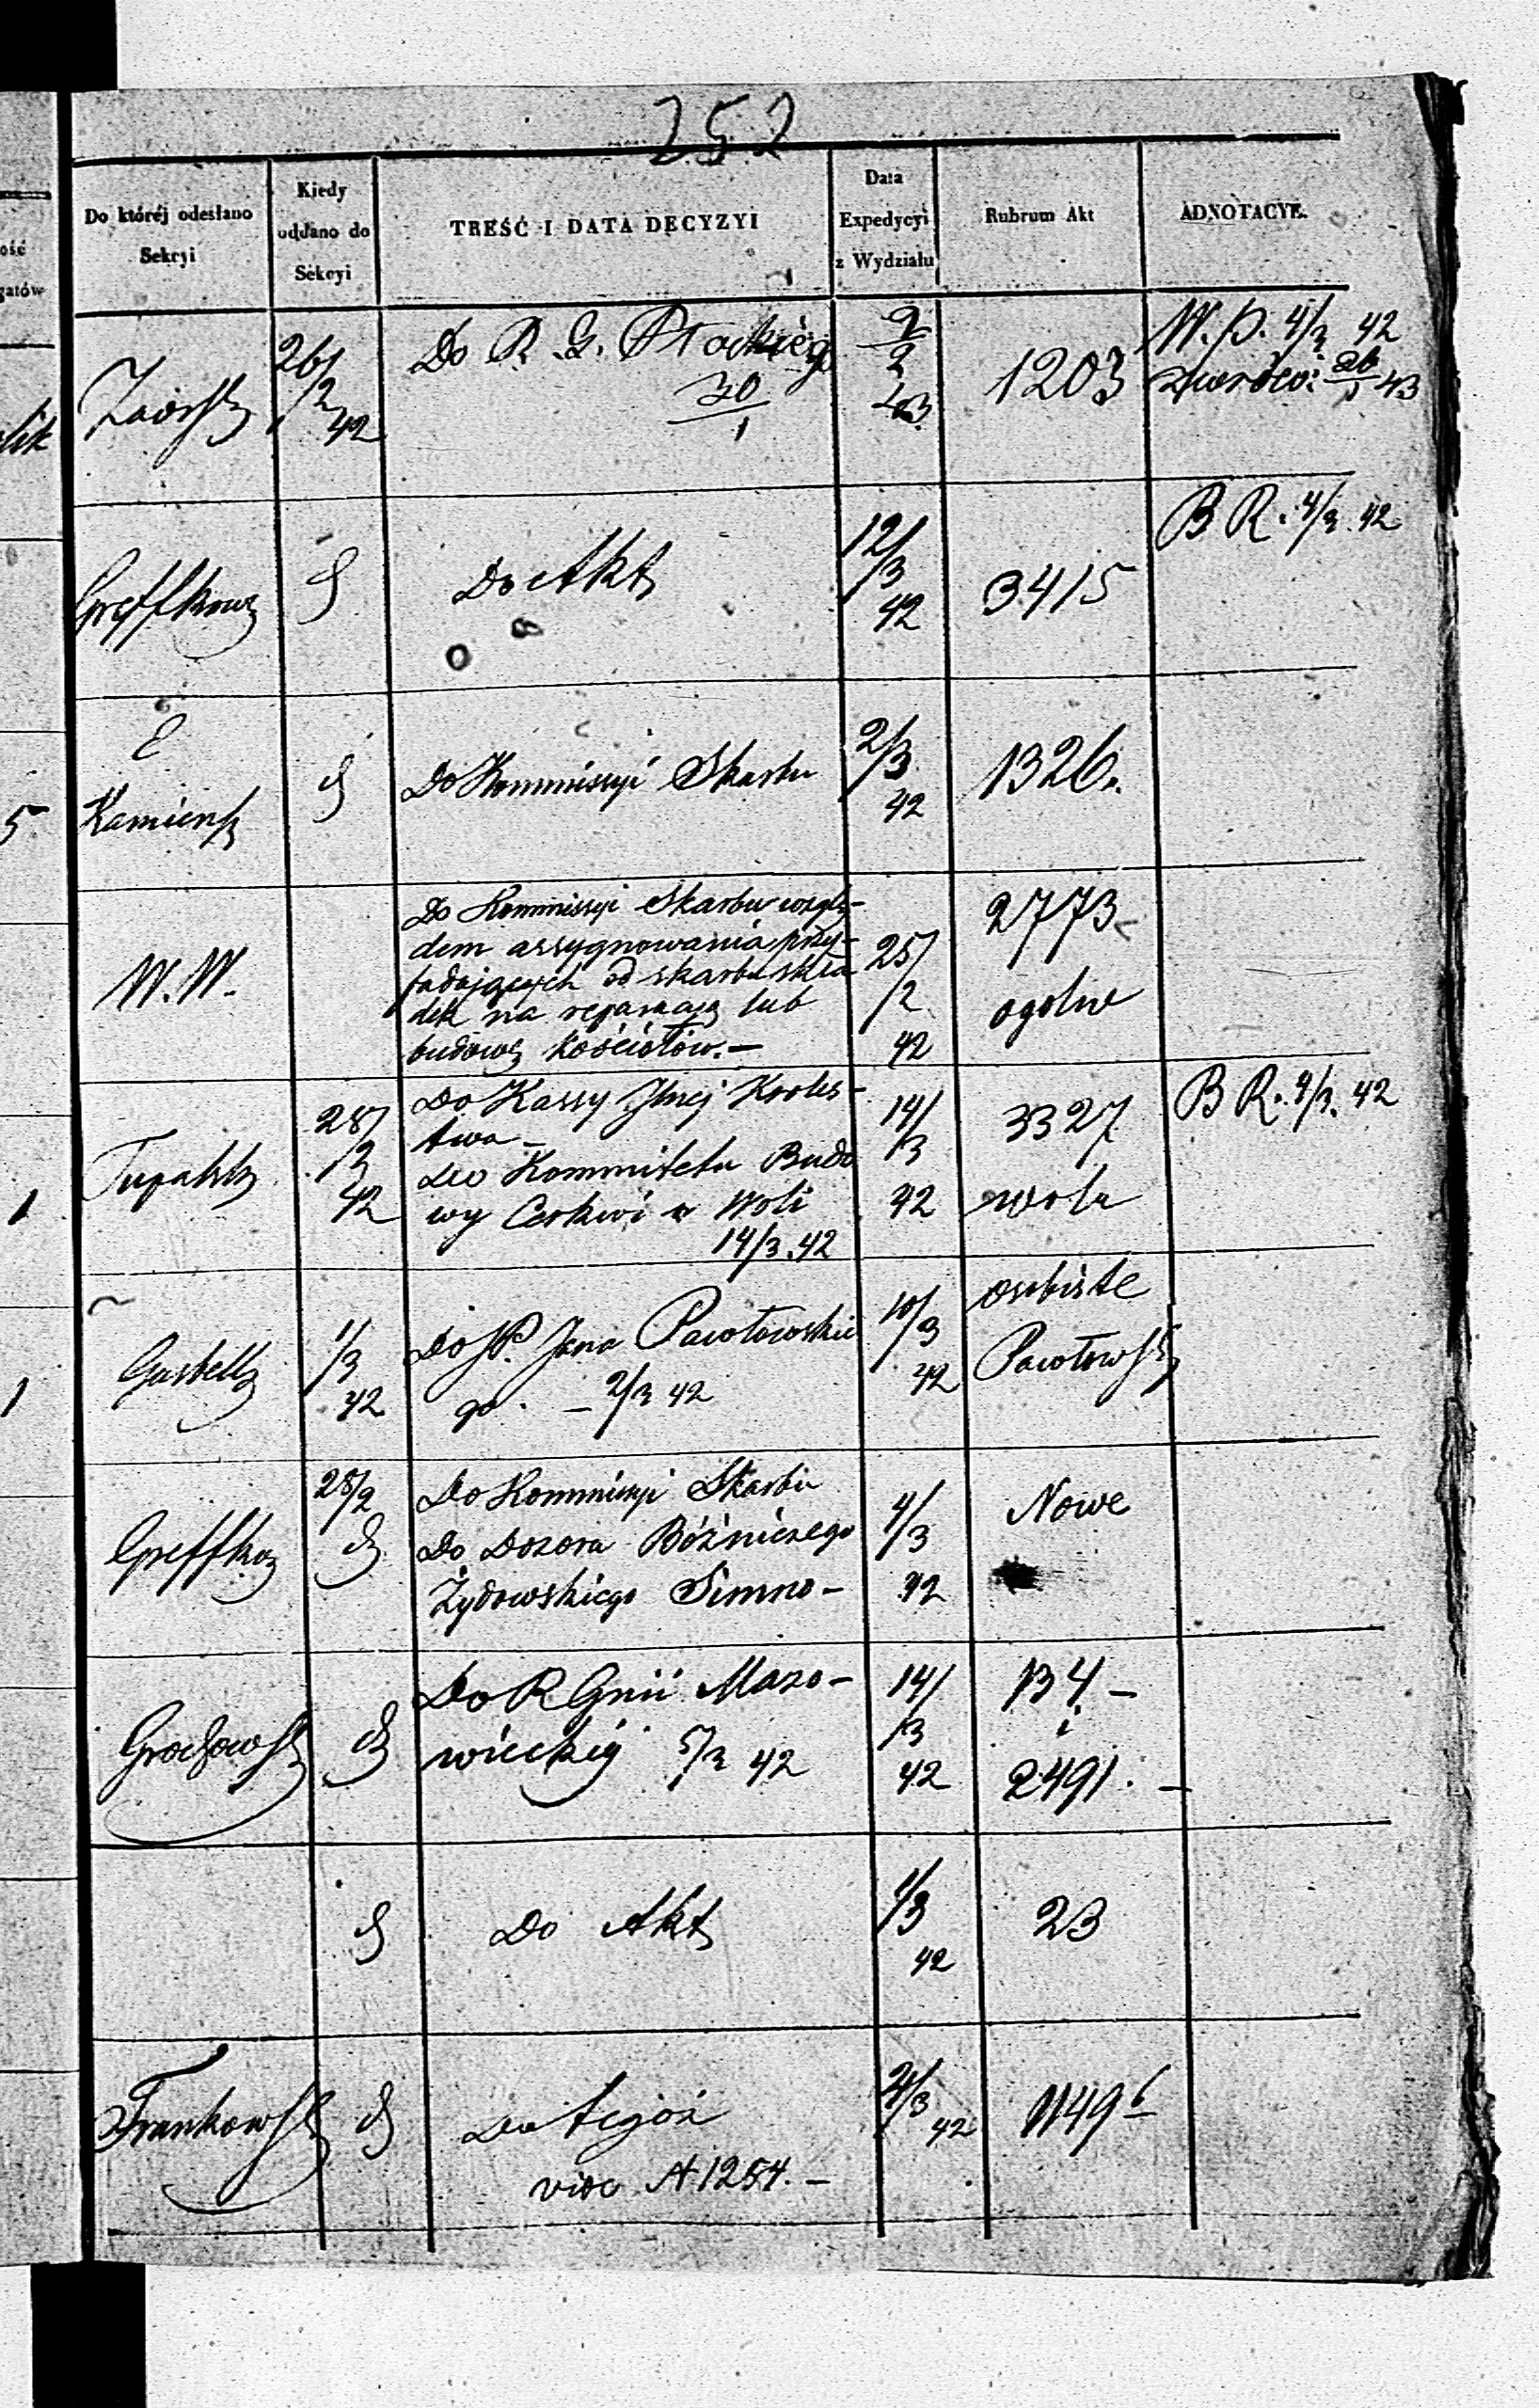 252
Do któréj odesłano
Sekcyi
Kiedy
oddano do
Sekcyi
TREŚĆ I DATA DECYZYI
Data
Expedycyi
z Wydziału
Rubrum Akt
ADNOTACYE.
26/2 42
Do R. G. Płockiégo
30/1
2/2 43
1203
W. P. 4/3 42
zwrócō: 26/1 43
Do Akt
12/3
42
3415
B R. 4/3. 42
Kamieńs
Do Kommissyi Skarbu
2/3
42
1326.
W. W.
Do Kommissyi Skarbu wzglę-
dem assygnowania przy-
padających od skarbu skła
dek na reparacyą lub
budowę kościołów.—
25/2
42
2773
ogolne
28/2
42
Do Kassy Jlnéj Króles-
twa —
do Kommitetu Budo
wy Cerkwi w Woli
14/3.42
14/3
42
3327
wola
B R. 4/3. 42
1/3
42
Do JP. Jana Pawołowskie
go. — 2/3 42
10/3
42
osobiste
Pawołows
28/2
Do Kommissyi Skarbu
Do Dozoru Bóźniczego
Żydowskiego Simno—
4/3
42
Nowe
Grochows
Do R Gnii Mazo-
wieckiéj 5/3 42
14/3
42
134 —
i
2491. —
Do Akt
1/3
42
23
Frankows
Do tegoż
vide A 1254. —
4/3 42